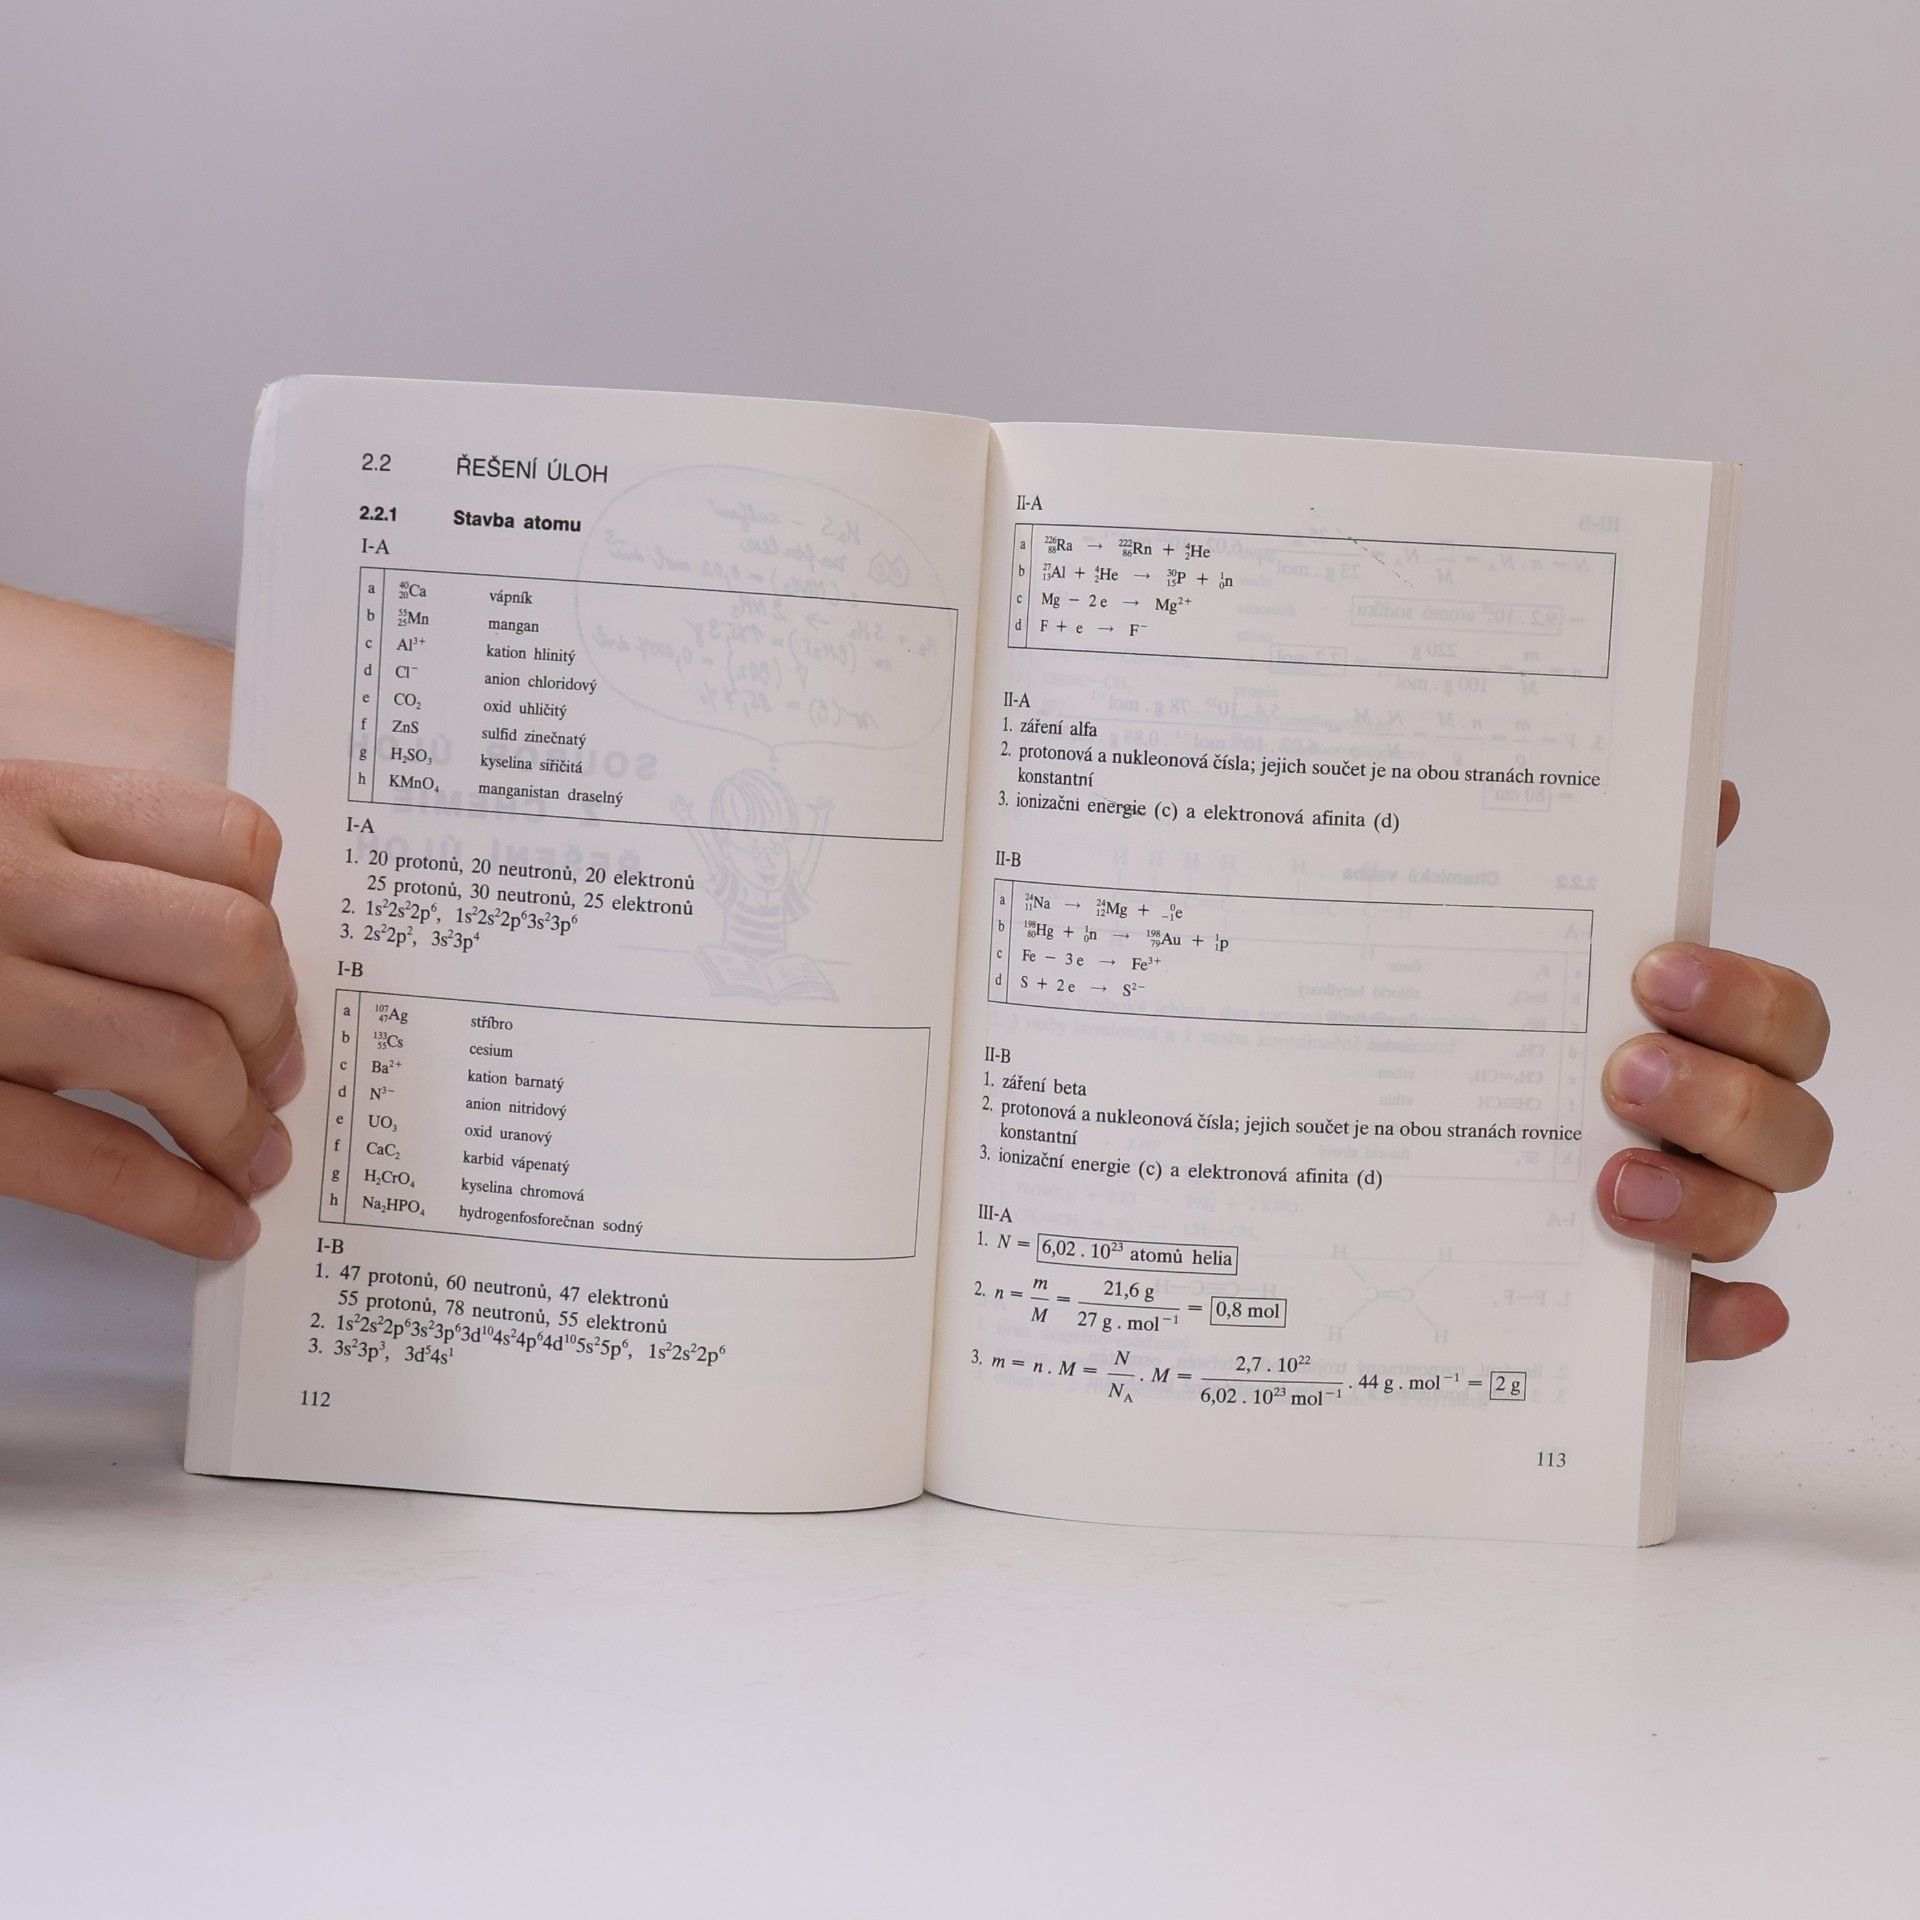 2.2 ŘEŠENÍ ÚLOH
2.2.1 Stavba atomu
I-A
a ⁴⁰₂₀Ca vápník
b ⁵⁵₂₅Mn mangan
c Al³⁺ kation hlinitý
d Cl⁻ anion chloridový
e CO₂ oxid uhličitý
f ZnS sulfid zinečnatý
g H₂SO₃ kyselina siřičitá
h KMnO₄ manganistan draselný
I-A
1. 20 protonů, 20 neutronů, 20 elektronů
25 protonů, 30 neutronů, 25 elektronů
2. 1s²2s²2p⁶, 1s²2s²2p⁶3s²3p⁶
3. 2s²2p², 3s²3p⁴
I-B
a ¹⁰⁷₄₇Ag stříbro
b ¹³³₅₅Cs cesium
c Ba²⁺ kation barnatý
d N³⁻ anion nitridový
e UO₃ oxid uranový
f CaC₂ karbid vápenatý
g H₂CrO₄ kyselina chromová
h Na₂HPO₄ hydrogenfosforečnan sodný
I-B
1. 47 protonů, 60 neutronů, 47 elektronů
55 protonů, 78 neutronů, 55 elektronů
2. 1s²2s²2p⁶3s²3p⁶3d¹⁰4s²4p⁶4d¹⁰5s²5p⁶, 1s²2s²2p⁶
3. 3s²3p³, 3d⁵4s¹
112
II-A
a ²²⁶₈₈Ra → ²²²₈₆Rn + ⁴₂He
b ²⁷₁₃Al + ⁴₂He → ³⁰₁₅P + ¹₀n
c Mg − 2e → Mg²⁺
d F + e → F⁻
II-A
1. záření alfa
2. protonová a nukleonová čísla; jejich součet je na obou stranách rovnice
konstantní
3. ionizační energie (c) a elektronová afinita (d)
II-B
a ²⁴₁₁Na → ²⁴₁₂Mg + ⁰₋₁e
b ¹⁹⁸₈₀Hg + ¹₀n → ¹⁹⁸₇₉Au + ¹₁p
c Fe − 3e → Fe³⁺
d S + 2e → S²⁻
II-B
1. záření beta
2. protonová a nukleonová čísla; jejich součet je na obou stranách rovnice
konstantní
3. ionizační energie (c) a elektronová afinita (d)
III-A
1. N = 6,02 . 10²³ atomů helia
2. n = m/M = 21,6 g / 27 g . mol⁻¹ = 0,8 mol
3. m = n . M = N/N_A . M = 2,7 . 10²² / 6,02 . 10²³ mol⁻¹ . 44 g . mol⁻¹ = 2 g
113